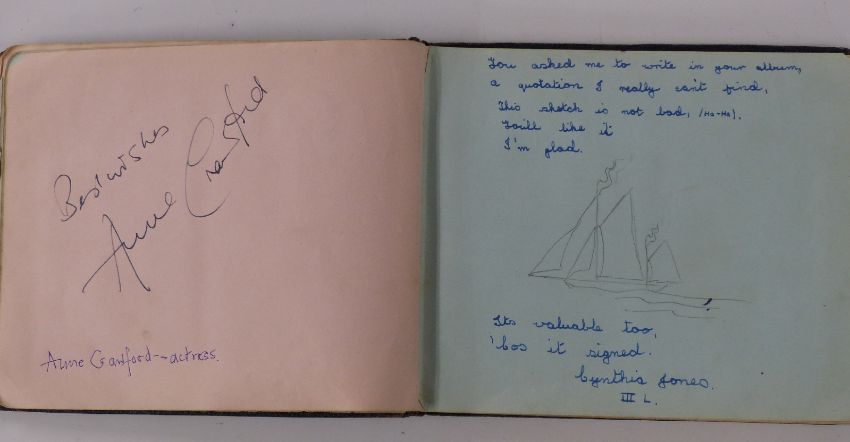 Best wishes
Anne Crawford
Anne Crawford - actress.
You asked me to write in your album,
a quotation I really can't find,
This sketch is not bad, (HA-HA).
You'll like it
I'm glad.
Its valuable too,
'Cos it signed.
Cynthia Jones.
III L.